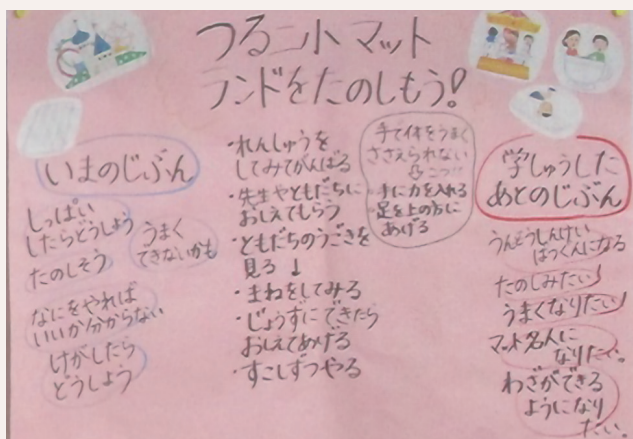 つるニ小マット
ランドをたのしもう!
いまのじぶん
しっぱい
したらどうしよう
たのしそう
うまく
できないかも
なにをやれば
いいか分からない
けがしたら
どうしよう
・れんしゅうを
してみてがんばる
・先生やともだちに
おしえてもらう
・ともだちのうごきを
見る↓
・まねをしてみる
・じょうずにできたら
おしえてあげる
・すこしずつやる
手で体をうまく
ささえられない
・手に力を入れる
・足を上の方に
あげる
学しゅうした
あとのじぶん
うんどうしんけい
ばつぐんになる
たのしみたい
うまくなりたい
マット名人に
なりたい。
わざができる
ようになり
たい。